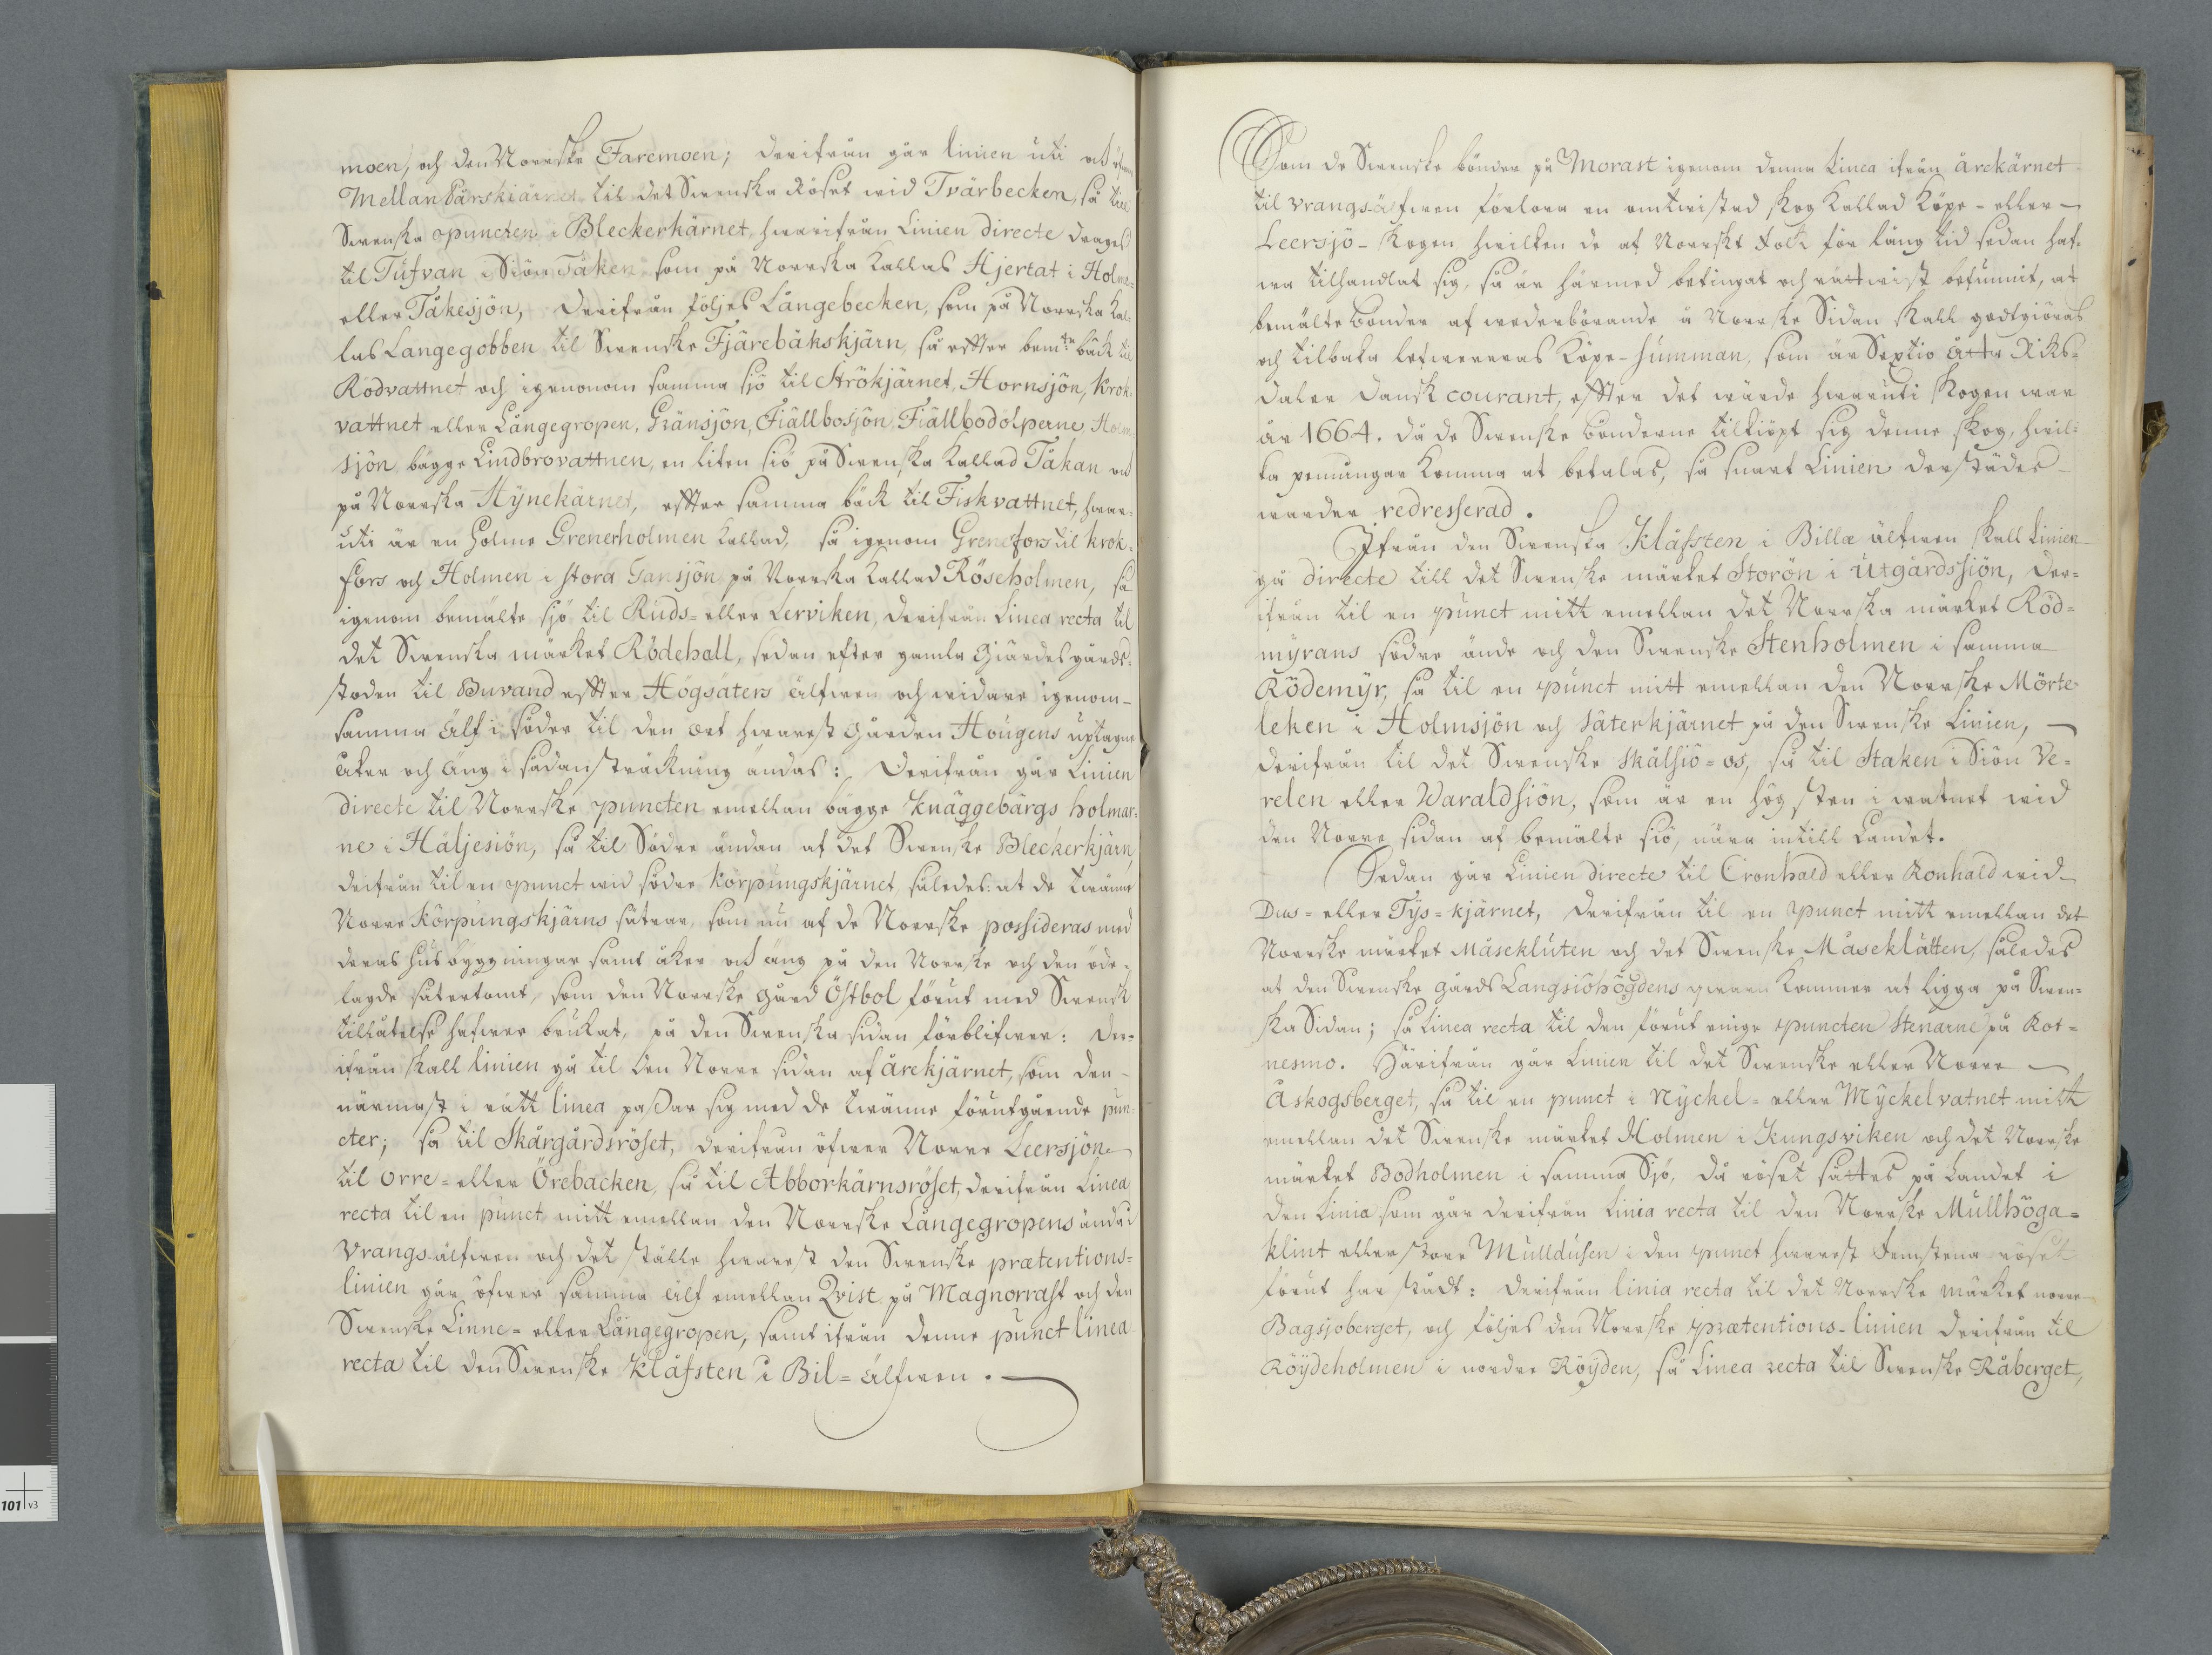 moen, och den Norrske Faremoen; derifrån går linien uti och öfwer
Mellan Pärskiärnet til det Swenska Röset wid Tvärbecken, så till
Swenska puncten i Bleckerkärnet, hwarifrån Linien directe drages
til Tufvan i Siön Täken som på Norrska kallas Hjertat i Holme-
eller Tåkesjön, derifrån följes Långebecken, som på Norrska kal-
las Langegobben til Swenske Fjärebäkskjärn, så effter bemte bäck til
Rödvattnet och igenonom samma sjö til Strökjärnet, Hornsjön, Krok-
vattnet eller Långegropen, Gränsjön, Fiällbosjön, Fiällbodolperne, Holm-
sjön, bägge Lindbrovattnen, en liten siö på Swenska kallad Täkan och
på Norrska Hynekärnet, effter samma bäck til Fiskvattnet, hwar-
uti är en Holme Grenerholmen kallad, så igenom Grenefors til Krok-
fors och Holmen i stora Tansjön på Norrska kallad Röseholmen, så
igenom bemälte sjö til Ruds- eller Lerviken, derifrån Linea recta til
det Swenska märket Rödehall, sedan efter gamla Giärdesgårds-
stoden til Buvand effter Högsäters älfwen och widare igenom
samma Älf i söder til den ort hwarest gården Hougens uptagne
åker och äng i sådan sträckning ändas: Derifrån går Linien
directe til Norrske puncten emellan bägge Knäggebärgs holmar-
ne i Häljesiön, så til Södre ändan af det Swenske Bleckerkjärn,
derifrån til en punct wid södre Körpungskjärnet, således at de twänne
Norre Körpungskjärns sätrar, som nu af de Norrske possideras med
deras husbyggningar samt åker och äng på den Norrske och den öde-
lagde sätertomt, som den Norrske gård Östbol förut med Swensk
tillåtelse hafwer brukat, på den Swenska sidan förblifwer: der-
ifrån skall linien gå til den Norre sidan af Årekjärnet, som den
närmast i rätt linea passar sig med de twänne förutgående pun-
cter; så til Skärgårdsröset, derifrån öfwer Norre Leersjön
til Orre- eller Örebäcken, så til Abborkärnsröset, derifrån Linea
recta til en punct mitt emellan den Norrske Långegropens ända i
Vrangs-älfwen och det ställe hwarest den Swenske prætentions-
linien går öfwer samma älf emellan Qvist på Magnorrast och den
Swenske Linne- eller Långegropen, samt ifrån denne punct linea
recta til den Swenske Klåfsten i Bil-Älfwen.
Som de Swenske bönder på Morast igenom denna Linea ifrån Årekärnet
til Vrangs-älfwen förlora en omtwistad skog kallad Köpe- eller
Leersjö-skogen hwilken de af Norrskt folk för lång tid sedan haf-
wa tilhandlat sig, så är härmed betingat och rättwist befunnit, at
bemälte bönder af wederbörande å Norrske Sidan skall godtgiöras
och tilbaka lefwereras Köpe-summan, som är Sextio åtta Riks-
daler Dansk courant, effter det wärde hwaruti skogen war
år 1664. då de Swenske bönderne tilkiöpt sig denne skog, hwil-
ka penningar komma at betalas, så snart Linien derstädes
warder redresserad.
Ifrån den Swenska Klåfsten i Billa älfwen skall Linien
gå directe till det Swenske märket Storön i Utgårdssiön, der-
ifrån til en punct mitt emellan det Norrska märket Röd-
myrans södre ände och den Swenske Stenholmen i samma
Rödemyr, så til en punct mitt emellan den Norrske Mörte-
leken i Holmsjön och Säterkjärnet på den Swenske Linien,
derifrån til det Swenske Skålsiö-os, så til Staken i Siön Ve-
relen eller Waraldsiön, som är en hög sten i watnet wid
den Norre sidan af bemälte siö, nära intill Landet.
Sedan går Linien directe til Cronhald eller Ronhald wid
Dus- eller Tys-kjärnet, derifrån til en punct mitt emellan det
Norrske märket Måseklúten och det Swenske Måseklätten, således
at den Swenske gårds Langsiöhögdens qwarn kommer at ligga på Swen-
ska Sidan; så Linea recta til den förut enige puncten Stenarne på Rot-
nesmo. Härifrån går Linien til det Swenske eller Norre
Åskogsberget, så til en punct i Nyckel- eller Myckelvatnet mitt
emellan det Swenske märket Holmen i Kungsviken och det Norrske
märket Bodholmen i samma Sjö, då röset sättes på Landet i
den Linia som går derifrån Linia recta til den Norrske Mullhöga-
klint eller store Mulldusen i den punct hwarest femstena röset
förut har stådt: derifrån linia recta til det Norrske märket norre
Bagsjoberget, och följes den Norrske prætentions-linien derifrån til
Röydeholmen i nordre Röyden, så Linea recta til Swenske Råberget,
101 v3